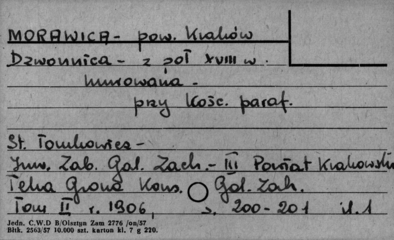 MORAWICA - pow. Kraków
Dzwonnica - z poł XVIII w.
murowana -
przy Kośc. paraf.
St. Tomkowicz -
Inw. Zab. Gal. Zach. - III Powiat Krakowski
Teka Grona Kons. Gal. Zach.
Tom II r. 1906, s. 200-201 il. 1
Jedn. C.W.D B/Olsztyn Zam 2776 /on/57
Bitk. 2563/57 10.000 szt. karton kl. 7 g 220.